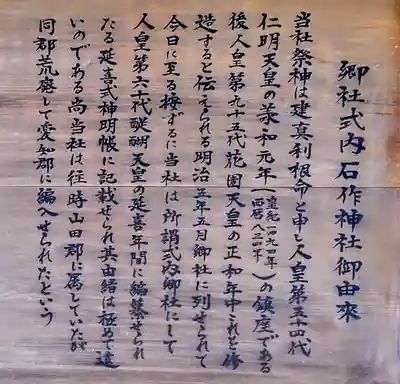 郷社式内石作神社御由来
当社祭神は建真利根命と申し人皇第五十四代
仁明天皇の承和元年(皇紀一四九四年西暦八三四年)の鎮座である
後人皇第九十五代花園天皇の正和年中これを修
造すると伝えられる明治五年五月郷社に列せられて
今日に至る按ずるに当社は所謂式内郷社にして
人皇第六十代醍醐天皇の延喜年間に編纂せられ
たる延喜式神明帳に記載せられ其由緒は極めて遠
いのである尚当社は往時山田郡に属していたが
同郡荒廃して愛知郡に編入せられたという